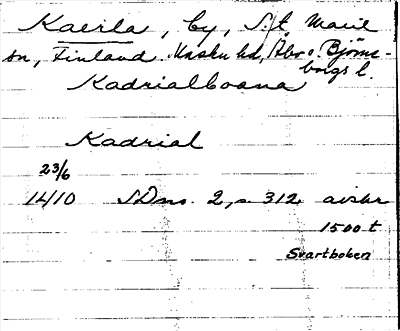 Kaerla, by, S:t Marie
sn, Finland. Masku hd, Åbo o. Björne-
borgs l.
Kadrialboana
Kadrial
23/6
14/10 SDms. 2, s. 312. avskr
1500 t
Svartboken